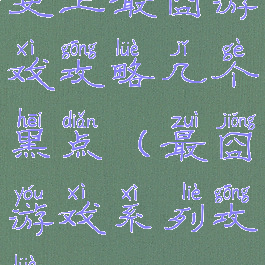 史上最囧游
xì gōng lüè jǐ gè
戏攻略几个
hēi diǎn zuì jiǒng
黑点(最囧
yóu xì xì liè gōng
游戏系列攻
lüè